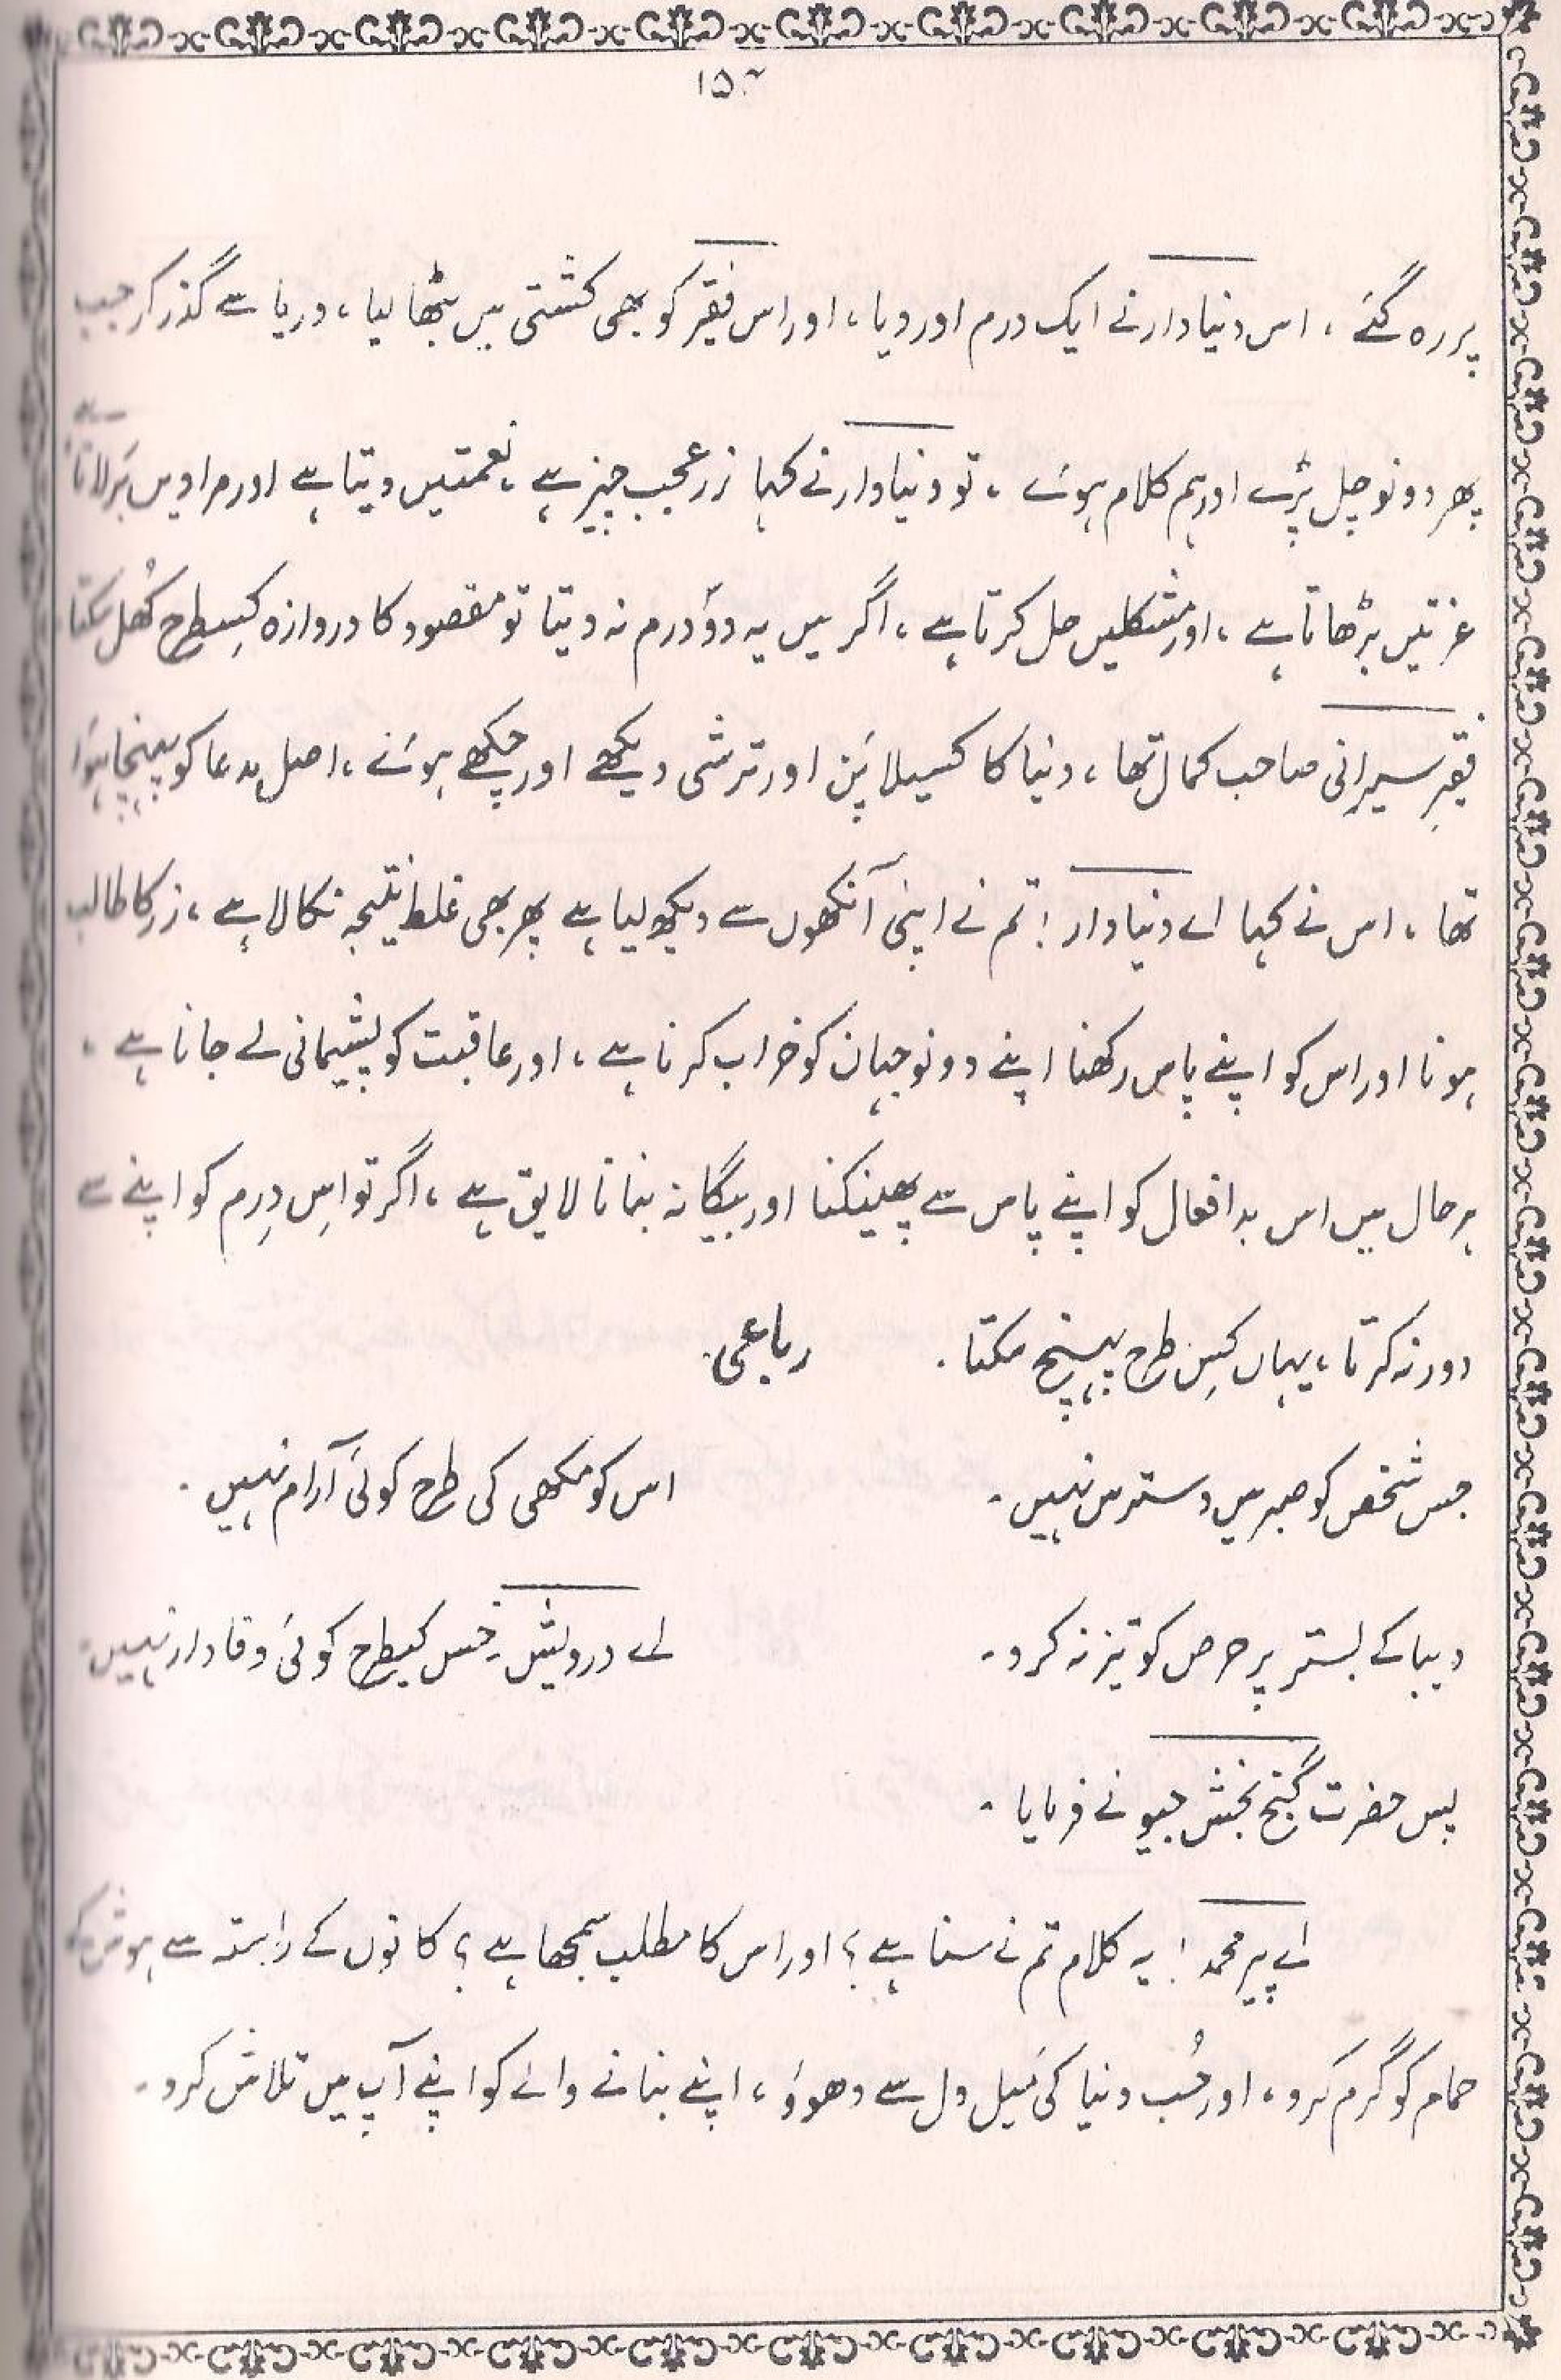 ۱۵۴
پر رہ گئے ، اس دنیا دار نے ایک درم اور دیا ، اور اس فقیر کو بھی کشتی میں بٹھا لیا ، دریا سے گذر کر جب
پھر دونو چل پڑے اور ہم کلام ہوئے ، تو دنیا دار نے کہا زر عجیب چیز ہے ، نعمتیں دیتا ہے اور مرادیں بَر لاتا ہے
عزتیں بڑھاتا ہے ، اور مشکلیں حل کرتا ہے ، اگر میں یہ دوؔ درم نہ دیتا تو مقصود کا دروازہ کِسطرح کُھل سکتا
فقیرِ سیرانی صاحب کمال تھا ، دنیا کا کسیلا پَن اور ترشی دیکھے اور چکھے ہوئے ، اصل مدعا کو پہنچا ہوَا
تھا ، اس نے کہا اے دنیا دار ! تم نے اپنی آنکھوں سے دیکھ لیا ہے پھر بھی غلط نتیجہ نکالا ہے ، زر کا طالب
ہونا اور اس کو اپنے پاس رکھنا اپنے دونو جہان کو خراب کرنا ہے ، اور عاقبت کو پشیمانی لے جانا ہے ،
ہر حال میں اس بد افعال کو اپنے پاس سے پھینکنا اور بیگانہ بنانا لایق ہے ، اگر تو اِس دِرم کو اپنے سے
دور نہ کرتا ، یہاں کِس طرح پہنچ سکتا ۔ رباعی
جس شخص کو صبر میں دسترس نہیں ۔ اس کو مکھی کی طرح کوئی آرام نہیں ۔
دیبا کے بستر پر حرص کو تیز نہ کرو ۔ اے درویش ۔ خس کیطرح کوئی وفادار نہیں ۔
پس حضرت گنج بخش جیو نے فرمایا ۔
اے پیر محمد ! یہ کلام تم نے سنا ہے ؟ اور اس کا مطلب سمجھا ہے ؟ کانوں کے راستہ سے ہوش کے
حمام کو گرم کرو ، اور حُب دنیا کی مَیل دل سے دھوؤ ، اپنے بنانے والے کو اپنے آپ میں تلاش کرو ۔